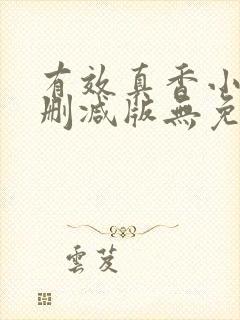 有效真香小
删减版無免
雲芨